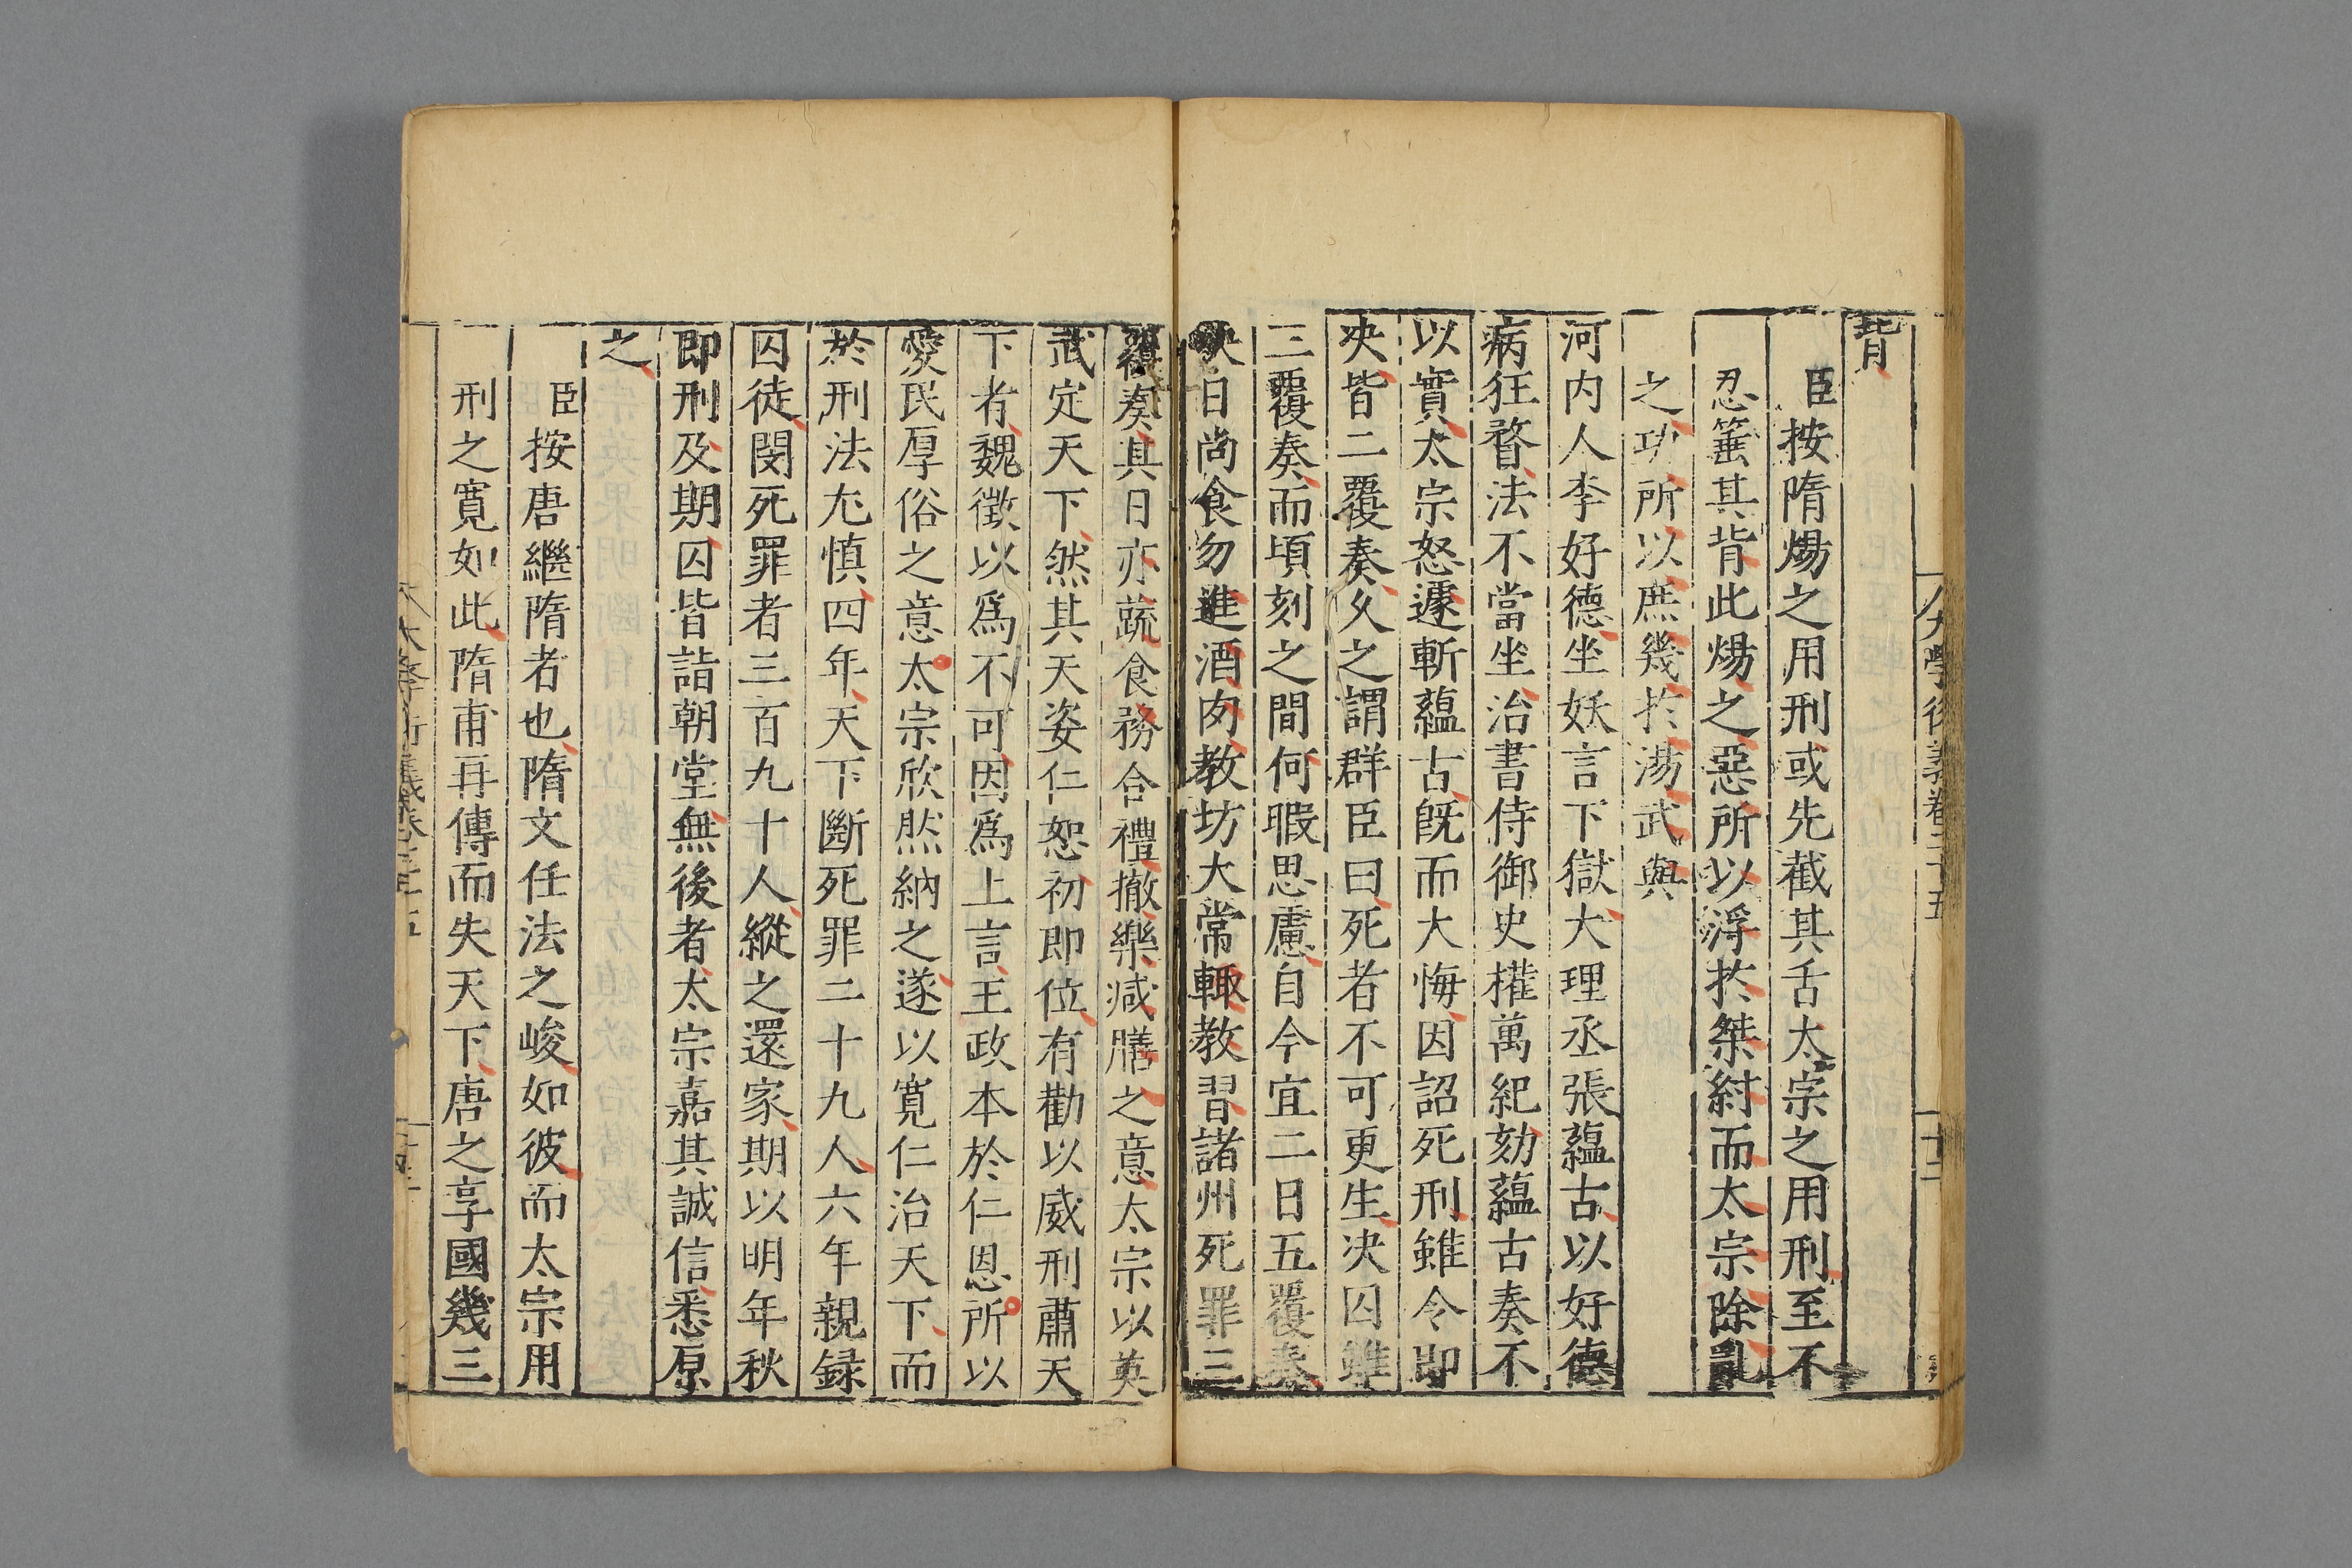 背
臣按隋煬之用刑或先截其舌太宗之用刑至不
忍箠其背此煬之惡所以浮於桀紂而太宗除亂
之功所以庶幾於湯武與
河内人李好德坐妖言下獄大理丞張藴古以好德
病狂瞀法不當坐治書侍御史權萬紀劾藴古奏不
以實太宗怒遽斬藴古旣而大悔因詔死刑雖令即
决皆二覆奏久之謂群臣曰死者不可更生决囚雖
三覆奏而頃刻之間何暇思慮自今宜二日五覆奏
决日尚食勿進酒肉教坊大常輙教習諸州死罪三
覆奏其日亦蔬食務合禮撤樂减膳之意太宗以英
武定天下然其天姿仁恕初即位有勸以威刑肅天
下者魏徵以爲不可因爲上言王政本於仁恩所以
愛民厚俗之意太宗欣然納之遂以寬仁治天下而
於刑法尤慎四年天下斷死罪二十九人六年親録
囚徒閔死罪者三百九十人縱之還家期以明年秋
即刑及期囚皆詣朝堂無後者太宗嘉其誠信悉原
之
臣按唐繼隋者也隋文任法之峻如彼而太宗用
刑之寛如此隋甫再傳而失天下唐之享國幾三